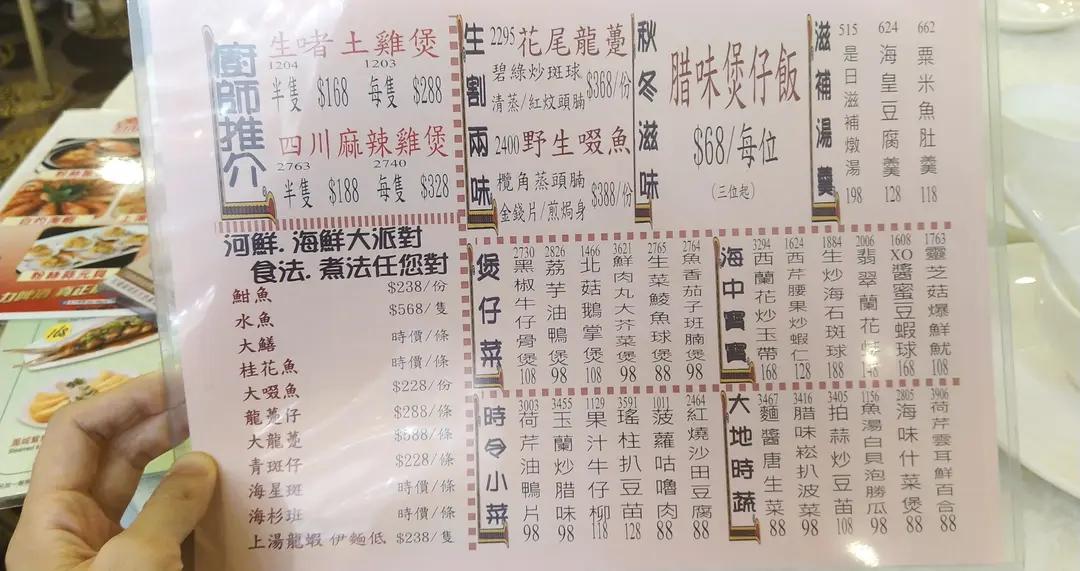 廚師推介
生啫土雞煲
1204 1203
半隻 $168 每隻 $288
四川麻辣雞煲
2763 2740
半隻 $188 每隻 $328
生劏兩味
2295 花尾龍躉
碧綠炒斑球
清蒸/紅炆頭腩
$368/份
2400 野生啜魚
欖角蒸頭腩
金錢片/煎焗身
$388/份
秋冬滋味
腊味煲仔飯
$68/每位
(三位起)
滋補湯羹
515 是日滋補燉湯 198
624 海皇豆腐羹 128
662 粟米魚肚羹 118
河鮮.海鮮大派對
食法.煮法任您對
魽魚 $238/份
水魚 $568/隻
大鱔 時價/條
桂花魚 時價/條
大啜魚 $228/份
龍躉仔 $288/條
大龍躉 $588/條
青斑仔 $228/條
海星斑 時價/條
海杉斑 時價/條
上湯龍蝦 伊麵低 $238/隻
煲仔菜
2730 黑椒牛仔骨煲 108
2826 荔芋油鴨煲 98
1466 北菇鵝掌煲 108
3621 鮮肉丸大芥菜煲 98
2765 生菜鯪魚球煲 88
2764 魚香茄子班腩煲 98
海中寶寶
3294 西蘭花炒玉帶 168
1624 西芹腰果炒蝦仁 128
1884 生炒海石斑球 188
2006 翡翠蘭花 148
1608 XO醬蜜豆蝦球 168
1763 靈芝菇爆鮮魷 108
時令小菜
3003 荷芹油鴨片 98
3455 玉蘭炒腊味 98
1129 果汁牛仔柳 118
3591 瑤柱扒豆苗 128
1011 菠蘿咕嚕肉 88
2464 紅燒沙田豆腐 88
大地時蔬
3467 麵醬唐生菜 88
3416 腊味崧扒波菜 98
3405 拍蒜炒豆苗 108
1156 魚湯白貝泡勝瓜 98
2805 海味什菜煲 88
3906 荷芹雲耳鮮百合 88